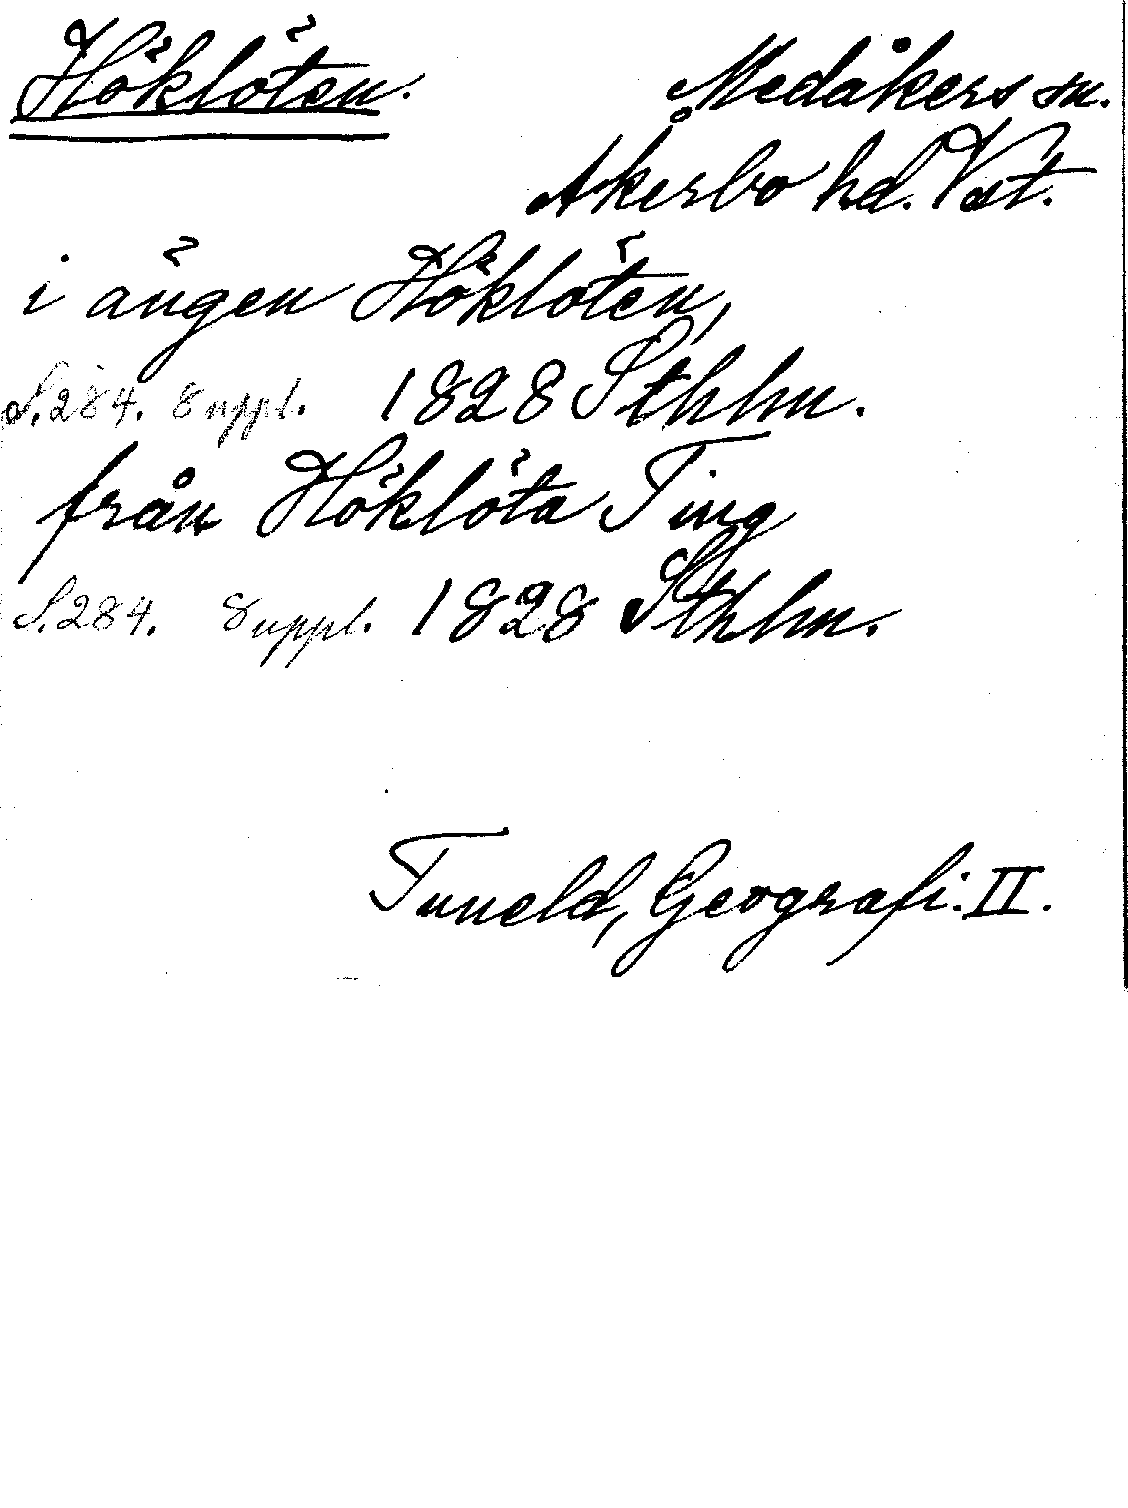 Höklöten. Medåkers sn.
Åkerbo hd. Vst.
i ängen Höklöten,
S. 284. 8 uppl. 1828 Sthlm.
från Höklöta Ting
S. 284. 8 uppl. 1828 Sthlm.
Tuneld, Geografi. II.